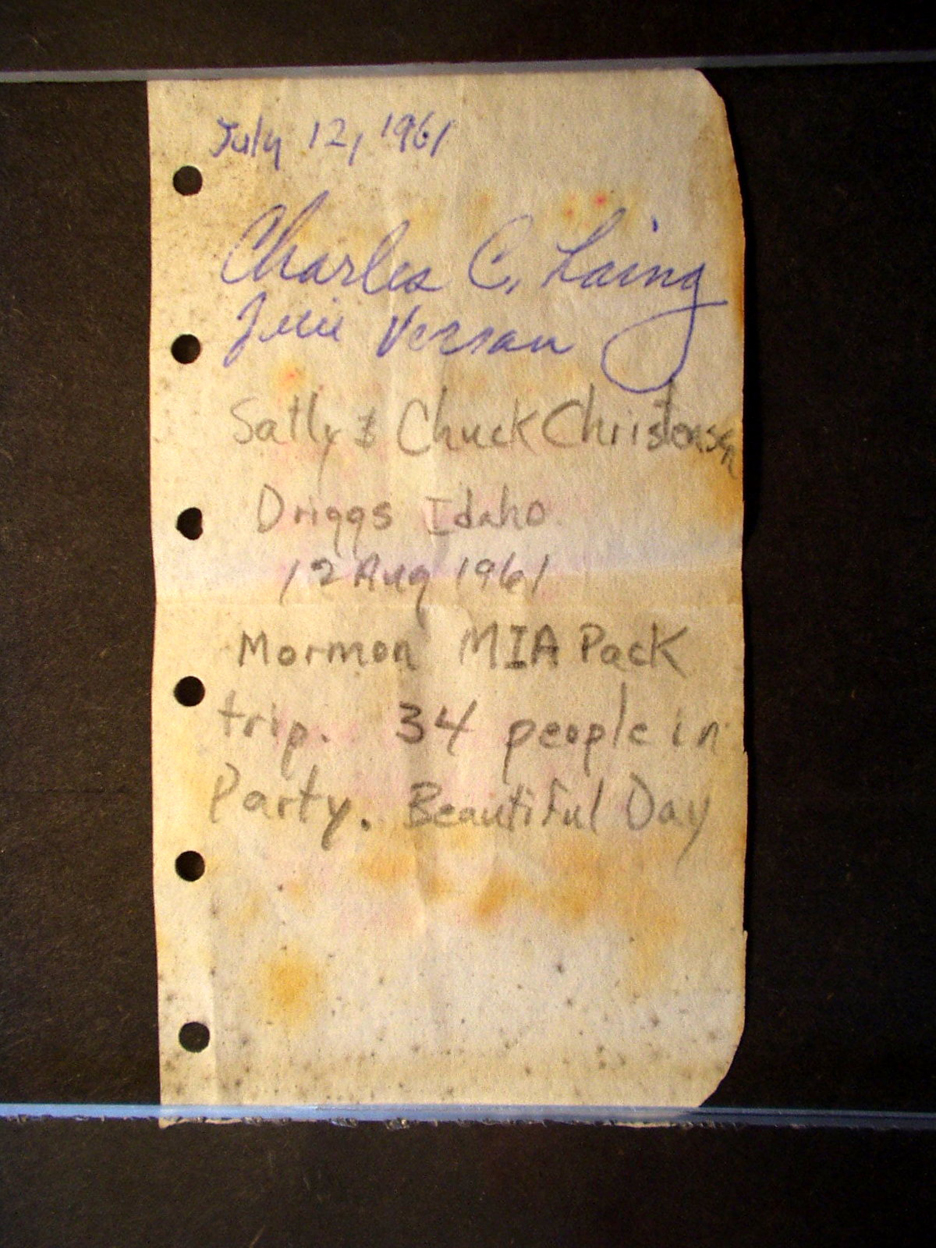 July 12, 1961
Charles C. Laing
Vernan
Sally & Chuck Christensen
Driggs Idaho
12 Aug 1961
Mormon MIA Pack
trip. 34 people in
Party. Beautiful Day